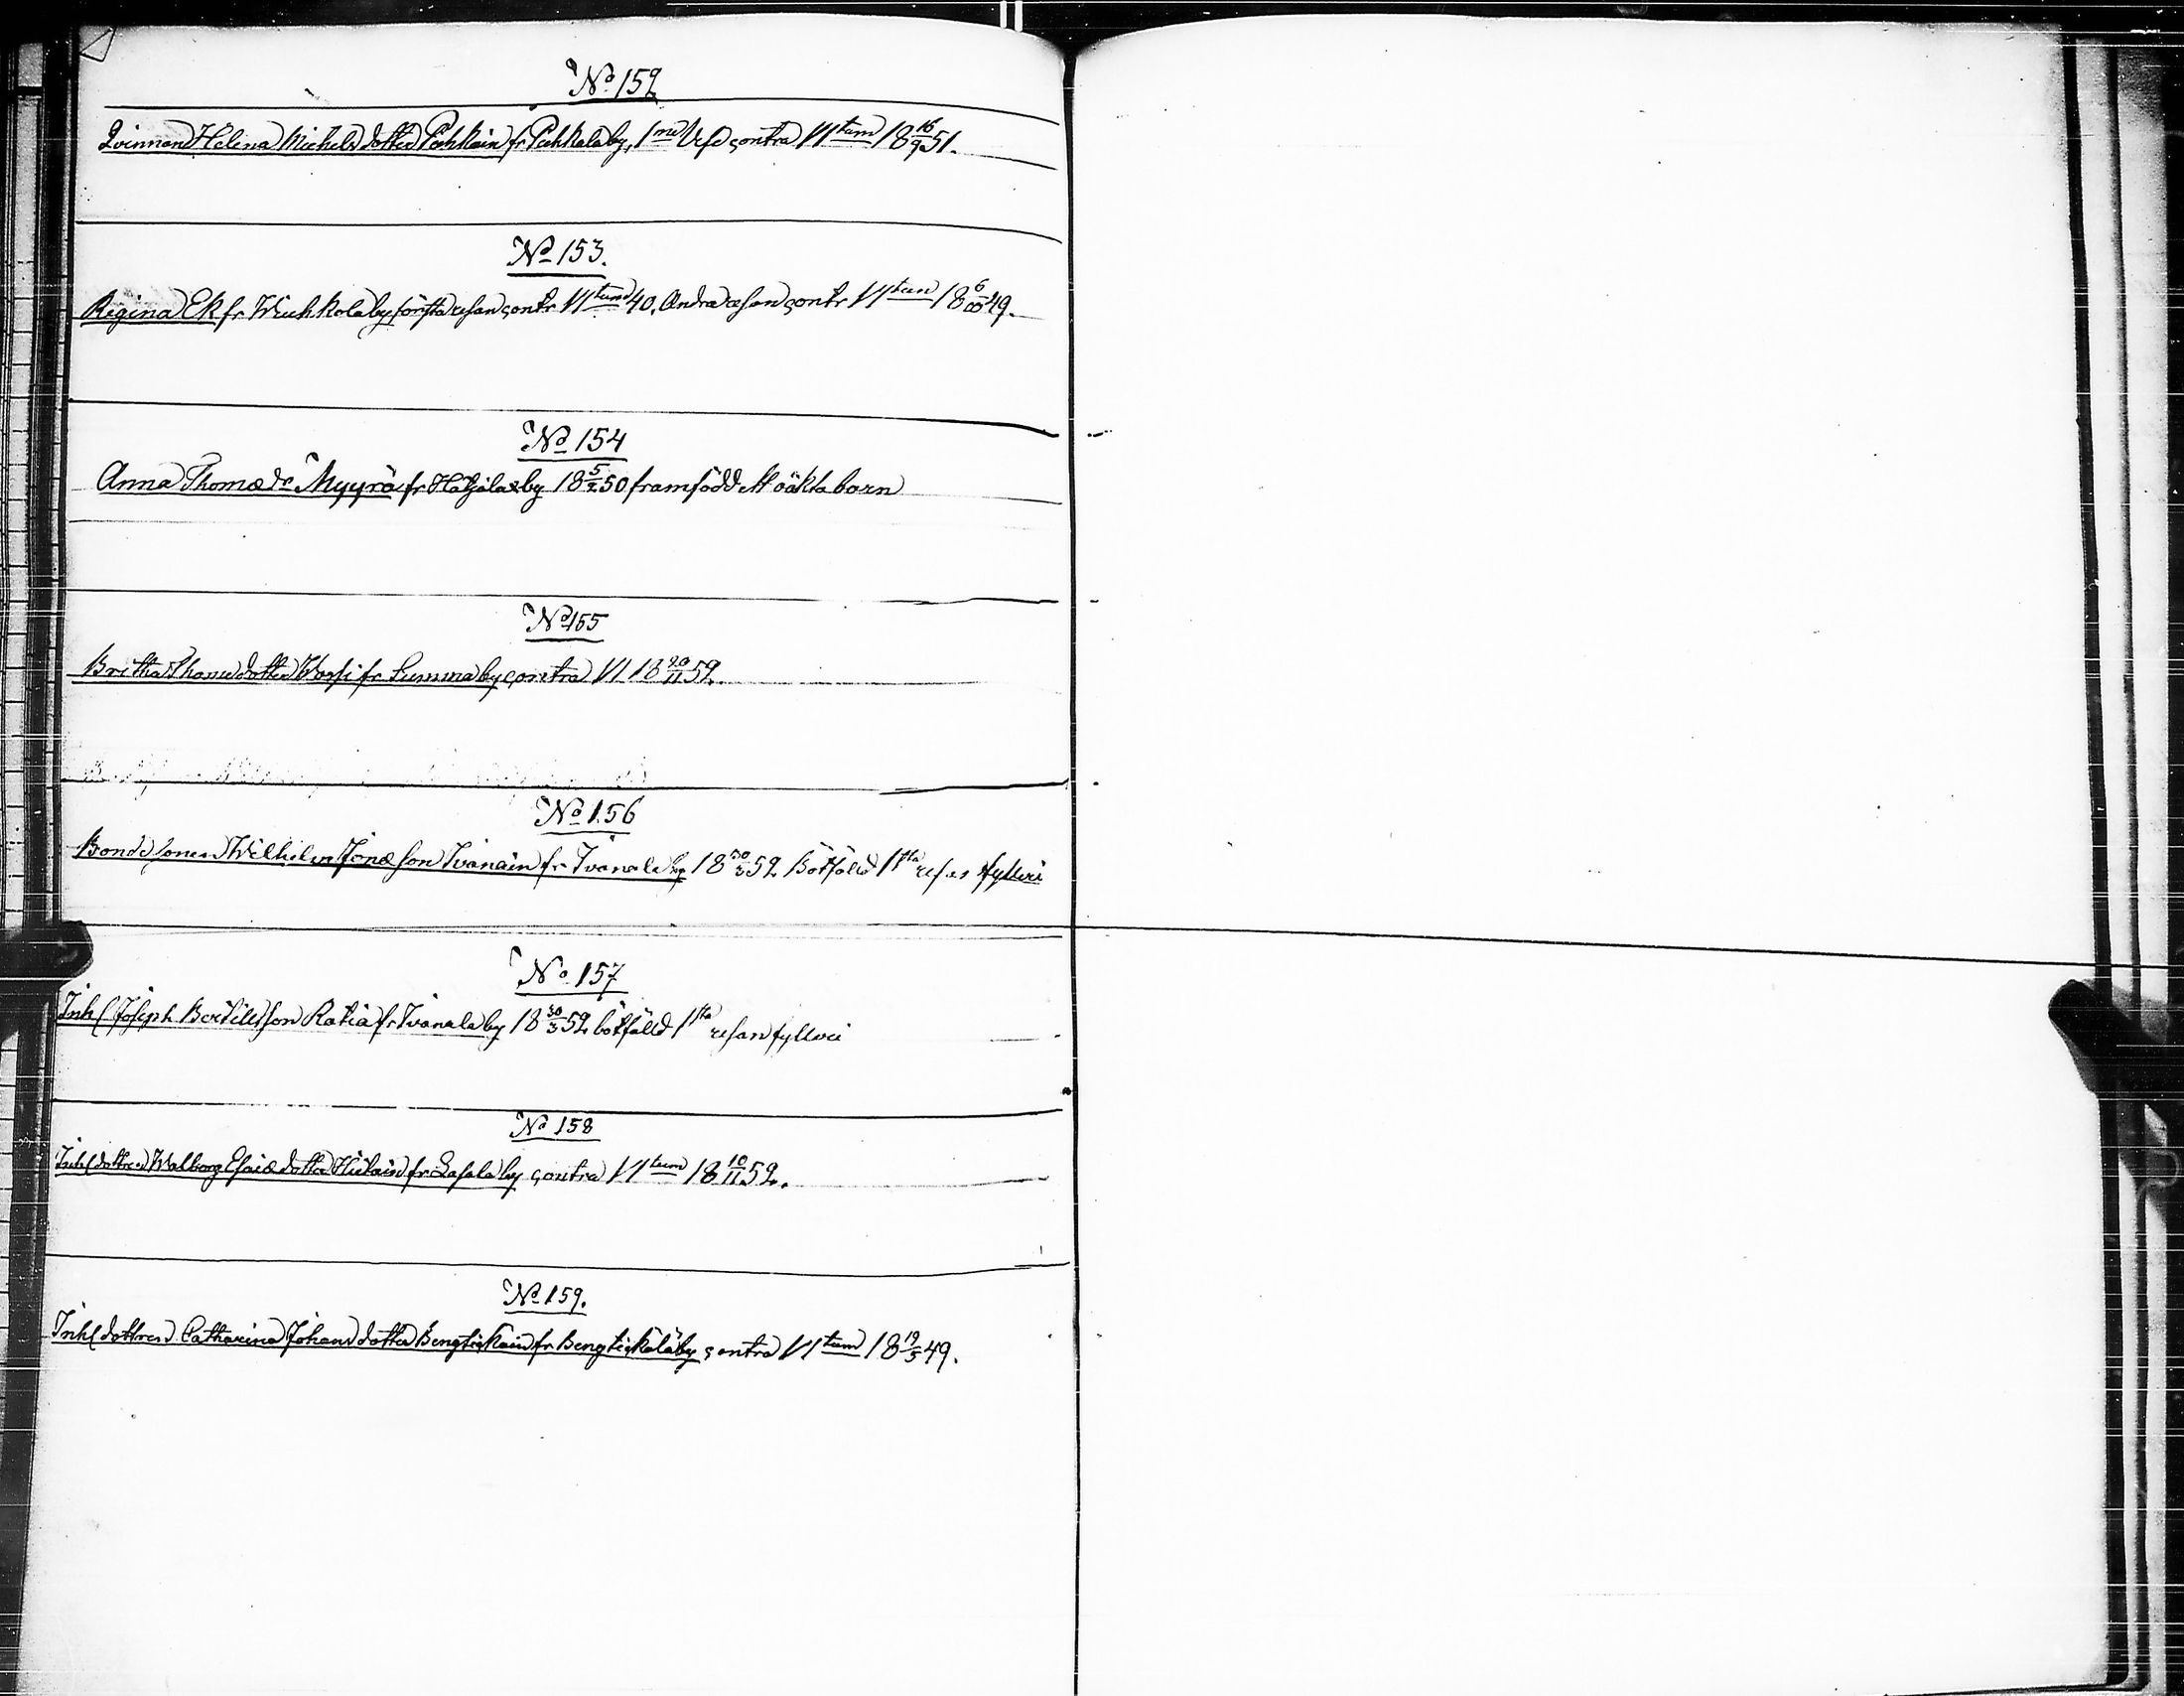 No 152
Qvinnan Helina Michels dotter Pihkain fr Pihkala by, 1ma Vese contra VI tum 18 16/9 51.
No 153.
Regina Ek fr Wiuhkola by första resan contr VI tum 40. Andra resan contr VI tum 18 6/00 49.
No 154
Anna Thomæ dr Myyrä fr Hatjala by 18 5/2 50 framfödd oäkta barn
No 155
Britha Thomedotter Worsi fr Summa by contra VI 18 20/11 52.
No 156
Bondesonen Wilhelm Jonæson Ivanain fr Ivanala by 18 30/3 52 Bötfäld 1sta resan fylleri
No 157
Inh Joseph Bertillsson Ratia fr Ivanala by 18 30/3 52 bötfälld 1sta resan fylleri
No 158
Inh dottren Walborg Esaiædotter Hietain fr Lasala by contra VI tum 18 10/11 52.
No 159.
Inh dottren Catharina Johansdotter Bengtiskain fr Bengtiskälä by contra VI tum 18 19/5 49.